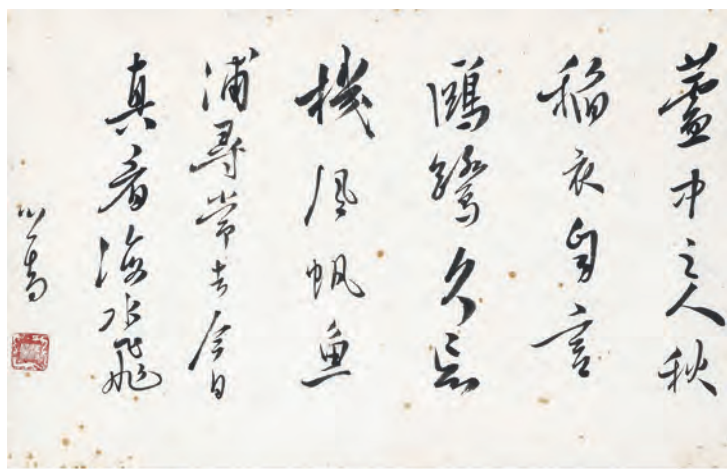 蘆中之人秋
稻衣自言
鷗鷺久忘
機風帆魚
浦尋常去今日
真看海水飛
心畬